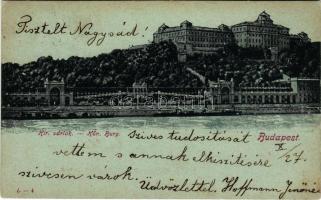 Tisztelt Nagysád!
Kir. várlak. — Kön. Burg.
Budapest.
Szives tudositását
X/27.
vettem s annak elkészitésére
szivesen várok.
Üdvözlettel Hoffmann Jenőné
6 - 4